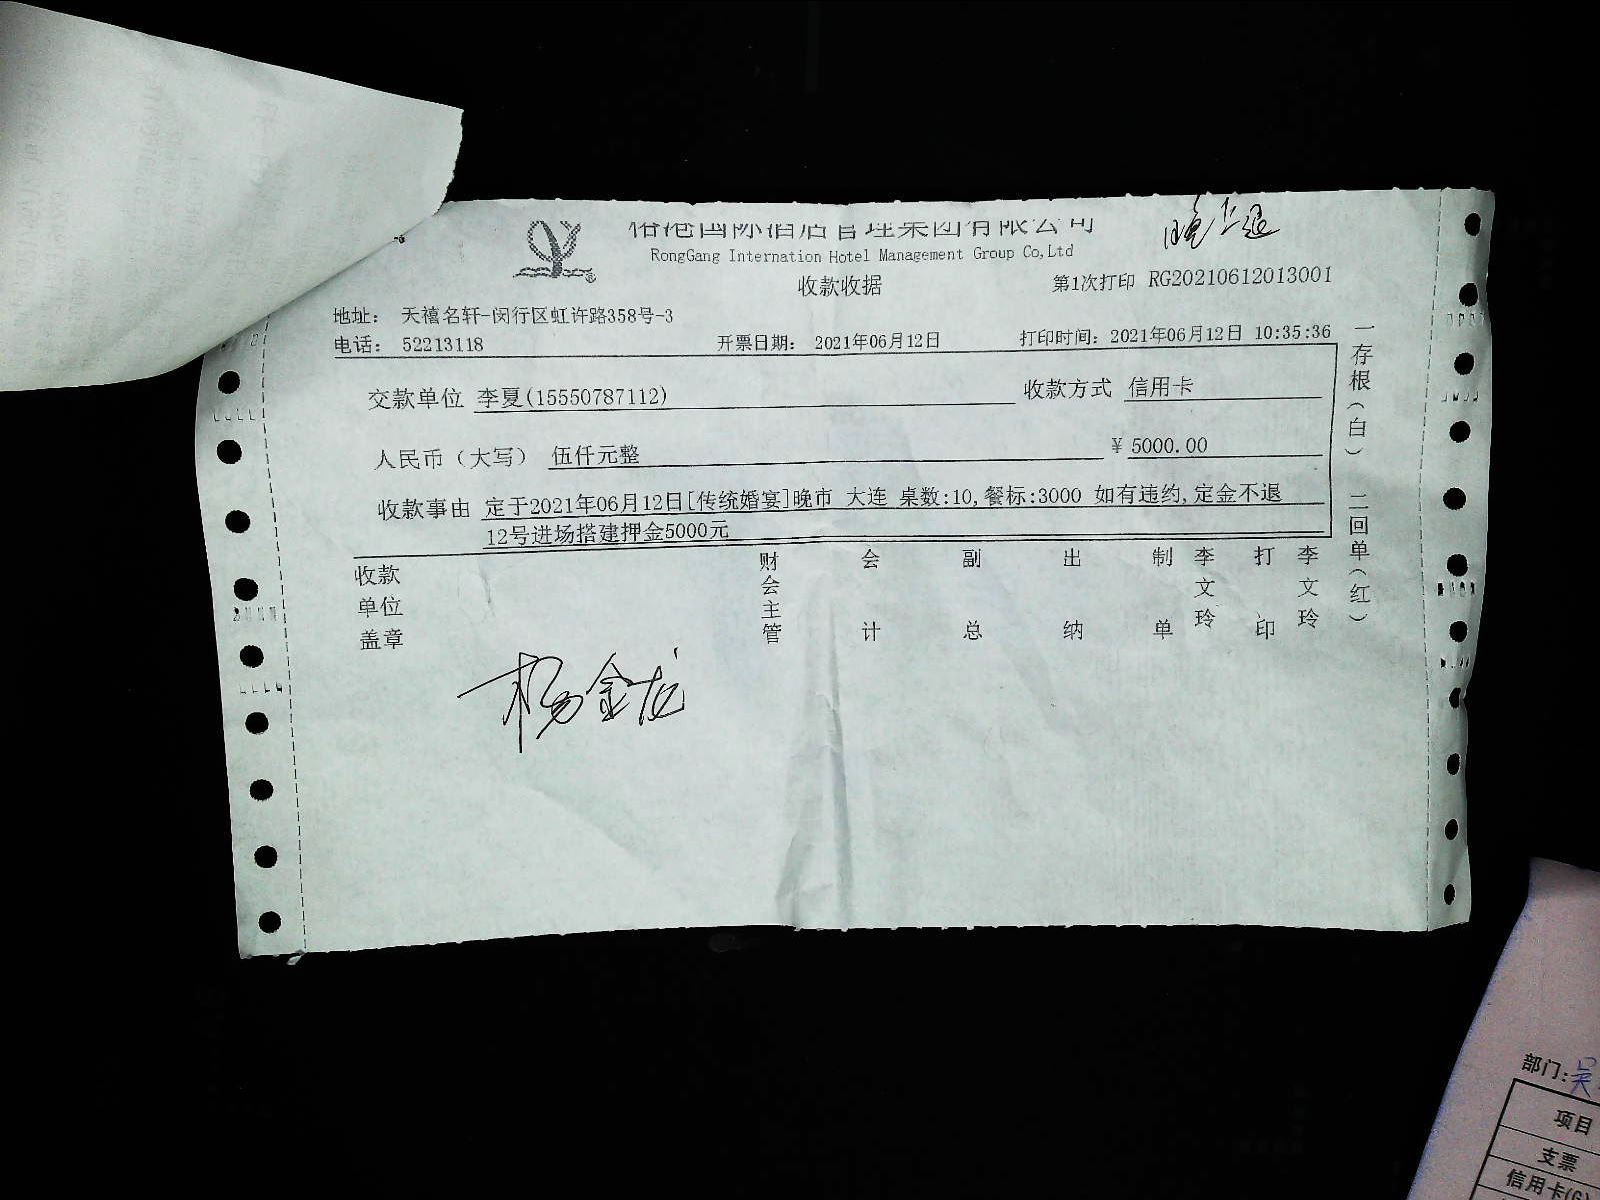 榕港国际酒店管理集团有限公司
晚上退
RongGang Internation Hotel Management Group Co,Ltd
收款收据
第1次打印 RG20210612013001
地址： 天禧名轩-闵行区虹许路358号-3
电话： 52213118
开票日期： 2021年06月12日
打印时间：2021年06月12日 10:35:36
交款单位 李夏(15550787112)
收款方式 信用卡
人民币（大写） 伍仟元整
¥ 5000.00
收款事由 定于2021年06月12日[传统婚宴]晚市 大连 桌数:10,餐标:3000 如有违约,定金不退
12号进场搭建押金5000元
一存根（白） 二回单（红）
收款单位盖章
财会主管
会计
副总
出纳
制单 李文玲
打印 李文玲
杨金龙
部门:吴
项目
支票
信用卡(G)